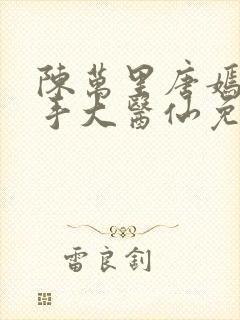 陳萬里唐嫣
手大醫仙免
雷良釗